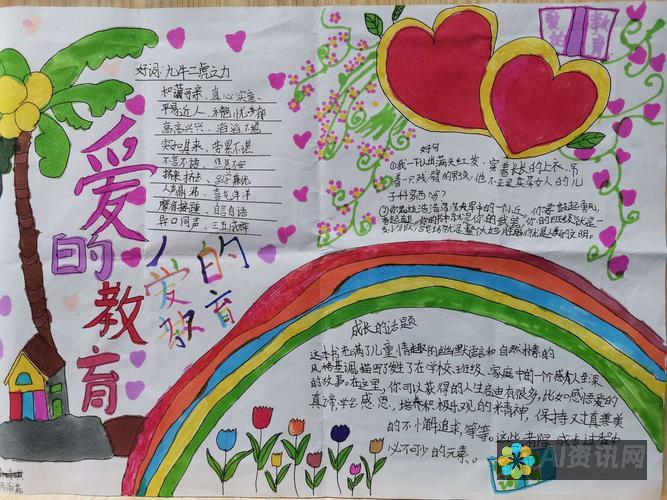 爱的教育
爱的教育
好词:九牛二虎之力
和蔼可亲、真心实意
平易近人、
高高兴兴、滔滔不绝
突如其来、
不言不语、焦急不安
挤来挤去、品学兼优
人声鼎沸、喜气洋洋
摩肩接踵、自言自语
异口同声、三五成群
爱的
教育
好句
①我一下认出满头红发,穿着长长的上衣,吊
着一只残臂的男孩,他不正是卖菜女人的儿
子 吗?
成长的话题
这本书充满了儿童情趣的幽默语言和自然朴素的
风格基调,描写了姓了在学校、班级、家庭中的一个感人至深
的故事。在这里,你可以获得的人生启由有很多,比如感恩爱的
真谛,学会感恩,培养积极乐观的精神,保持对真善美
的不懈追求,等等。这些,都是成长过程中
必不可少的元素。
AI资讯网